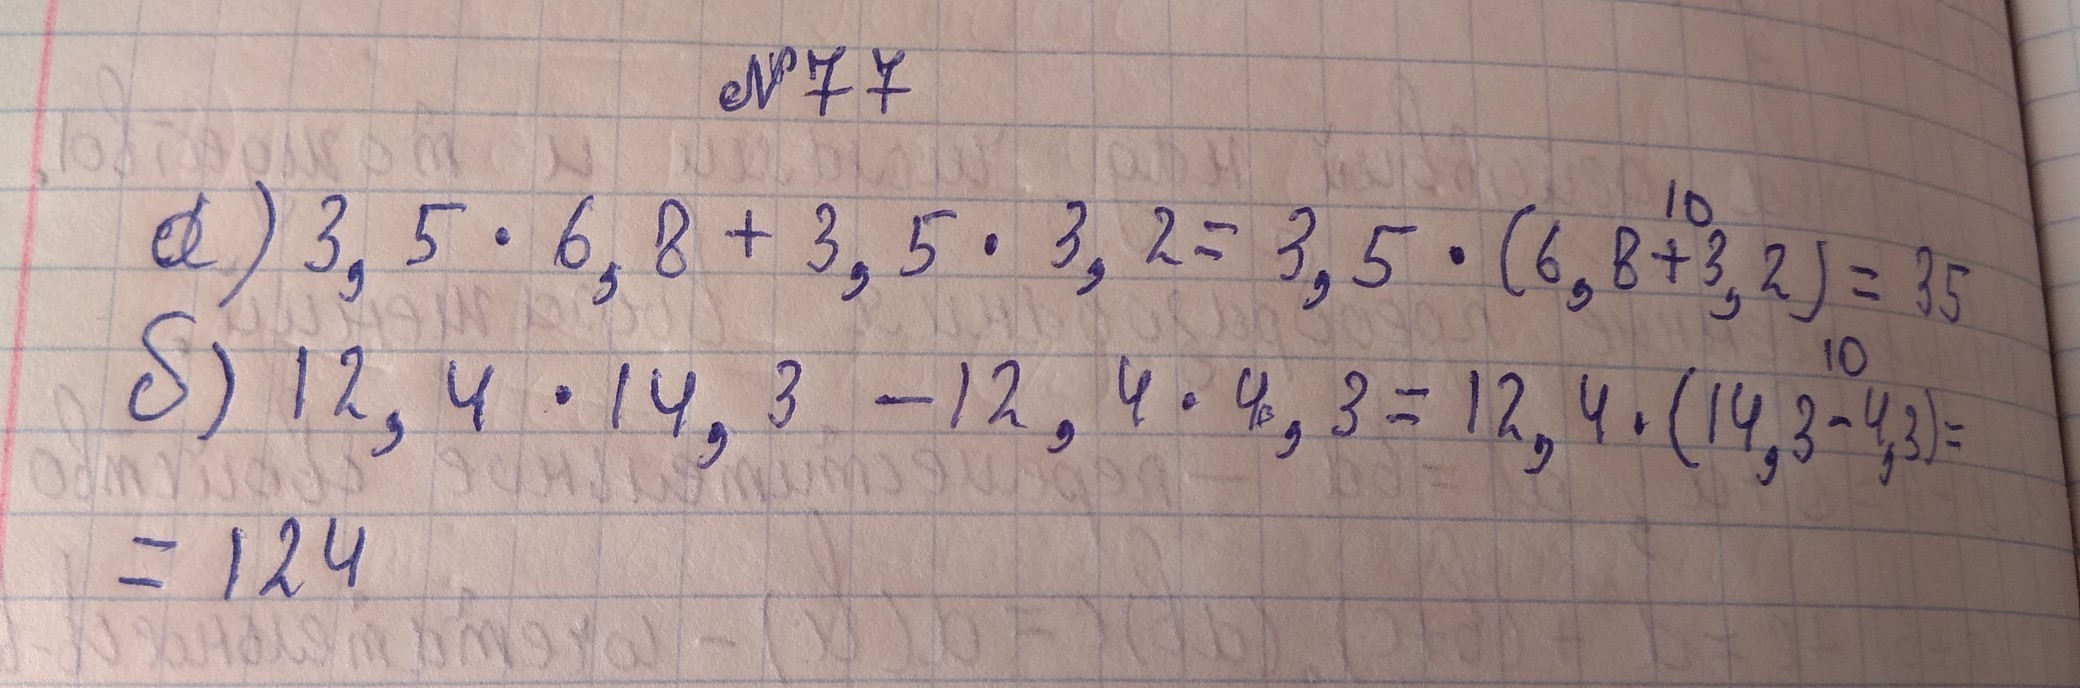 №77
10
а) 3,5 · 6,8 + 3,5 · 3,2 = 3,5 · (6,8+3,2) = 35
10
б) 12,4 · 14,3 - 12,4 · 4,3 = 12,4 · (14,3-4,3)=
= 124